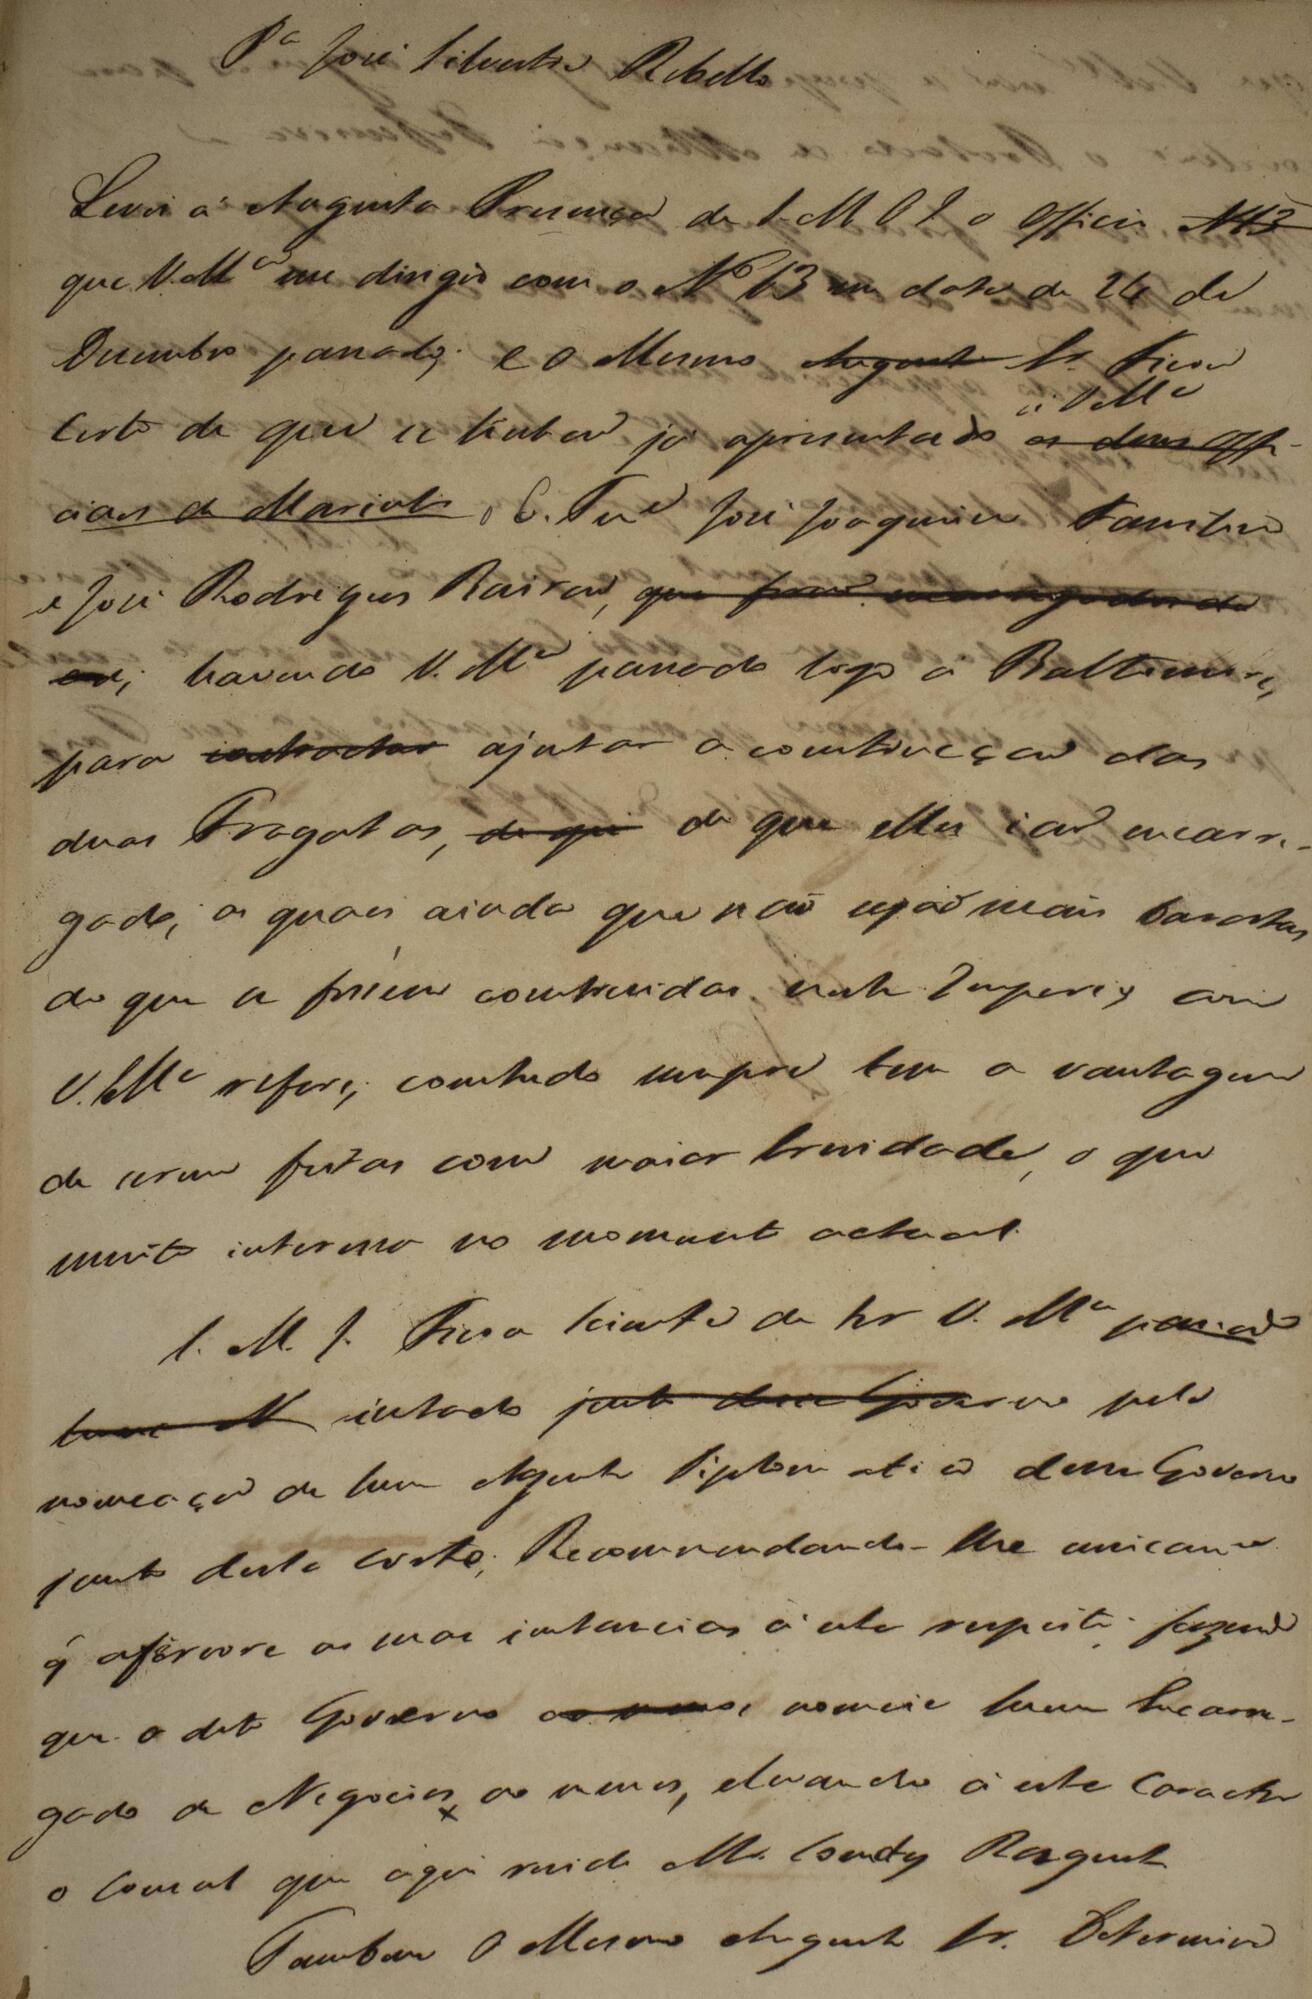 Pa José Silvestre Rebello
Levei á Augusta Presença de S. M. O I. o Officio N 13
que V. Mce me dirigio com o No 13 em data de 24 de
Dezembro passado; e O Mesmo Augusto Sr. Ficou
certo de que se tinhão já apresentado á V Mce os dous Offi-
ciaes de Marinha, o C. Tene José Joaquim Faustino
e José Rodrigues
havendo V. Mce passado logo á Baltimore,
para contractar ajustar a construcção das
duas Fragatas, de que de que elles ião encarre-
gados, as quaes ainda que não sejão mais baratas
do que se fossem construidas neste Imperio, como
V. Mce refere, comtudo sempre tem a vantagem
de serem feitas com maior brevidade, o que
muito interessa no momento actual.
S. M. I. Fica sciente de ter V. Mce
instado junto desse Governo pela
nomeação de hum Agente Diplomatico desse Governo
junto desta Corte; Recommendando-lhe unicame
q afervore as suas instancias á este respeito fazendo
que o dito Governo nomeie hum Encarre-
gado de Negocios ao menos, elevando á este Caracter
o Consul que aqui reside Mr. Condy Raguet
Tambem O Mesmo Augusto Sr. Determina